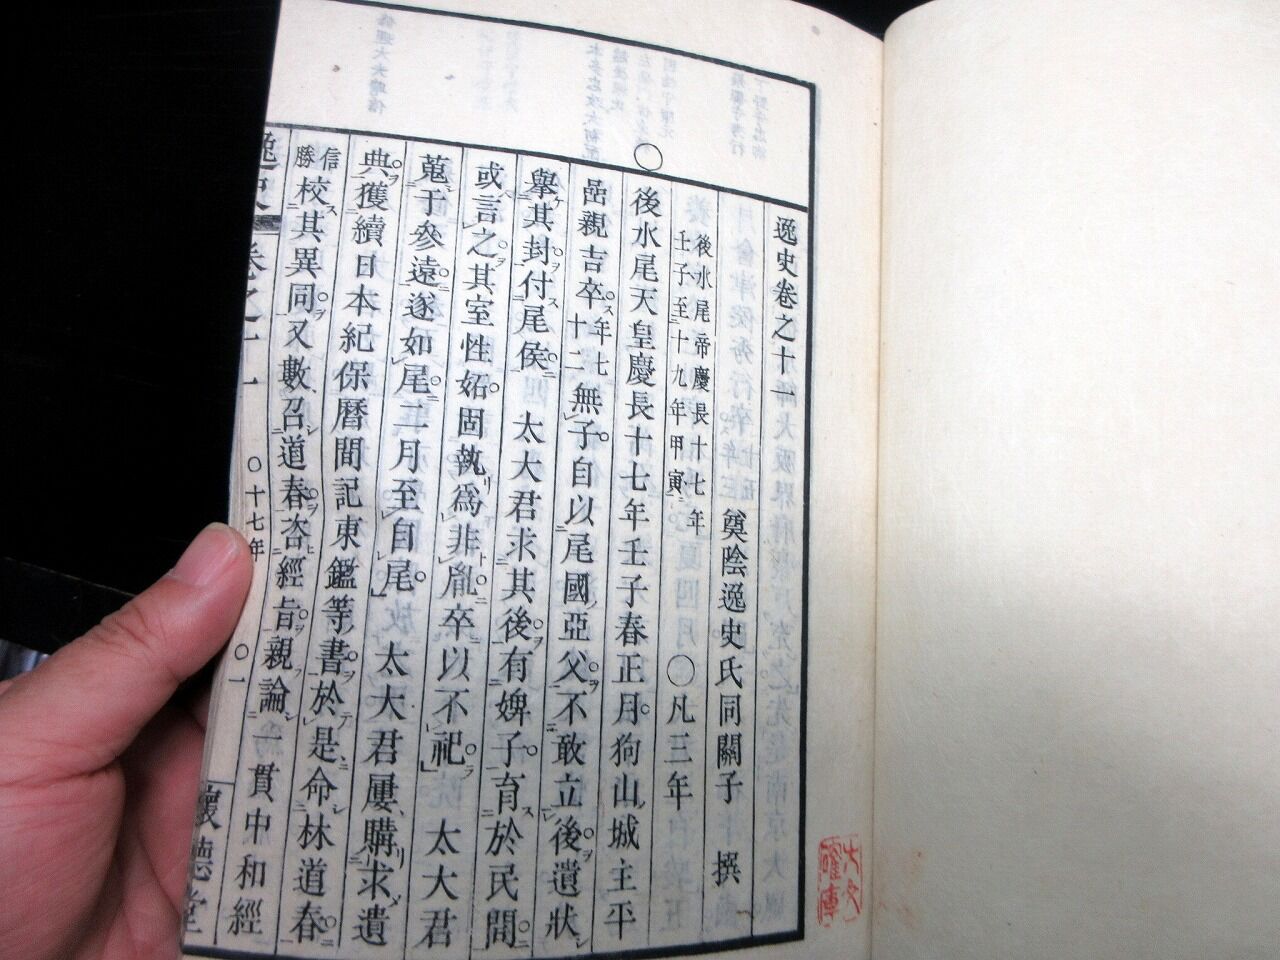 逸史卷之十一
奠陰逸史氏同關子 撰
後水尾帝慶長十七年
壬子至十九年甲寅
〇凡三年
〇
後水尾天皇慶長十七年壬子春正月狗山城主平
嵒親吉卒年七十二無子自以尾國亞父不敢立後遺狀
擧其封付尾侯 太大君求其後有婢子育於民間
或言之其室性妬固執爲非胤卒以不祀 太大君
蒐于參遠遂如尾二月至自尾 太大君屢購求遺
典獲續日本紀保曆間記東鑑等書於是命林道春
信勝校其異同又數召道春咨經旨親論一貫中和經
逸史 卷之十一
〇十七年
〇一
懷德堂